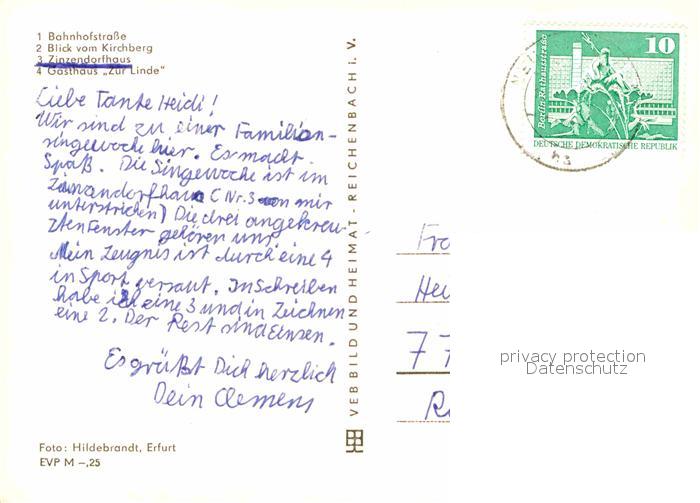 1 Bahnhofstraße
2 Blick vom Kirchberg
3 Zinzendorfhaus
4 Gasthaus „Zur Linde“
Liebe Tante Heidi!
Wir sind zu einer Familien-
singewoche hier. Es macht
Spaß. Die Singewoche ist im
Zinzendorfhaus (Nr. 3 von mir
unterstrichen) Die drei angekreu-
zten Fenster gehören uns.
Mein Zeugnis ist durch eine 4
in Sport versaut. In Schreiben
habe ich eine 3 und in Zeichnen
eine 2. Der Rest sind Einsen.
Es grüßt Dich herzlich
Dein Clemens
Foto: Hildebrandt, Erfurt
EVP M –,25
VEB BILD UND HEIMAT - REICHENBACH I. V.
10
Berlin-Rathausstraße
DEUTSCHE DEMOKRATISCHE REPUBLIK
Fr
Hei
77
R
privacy protection
Datenschutz